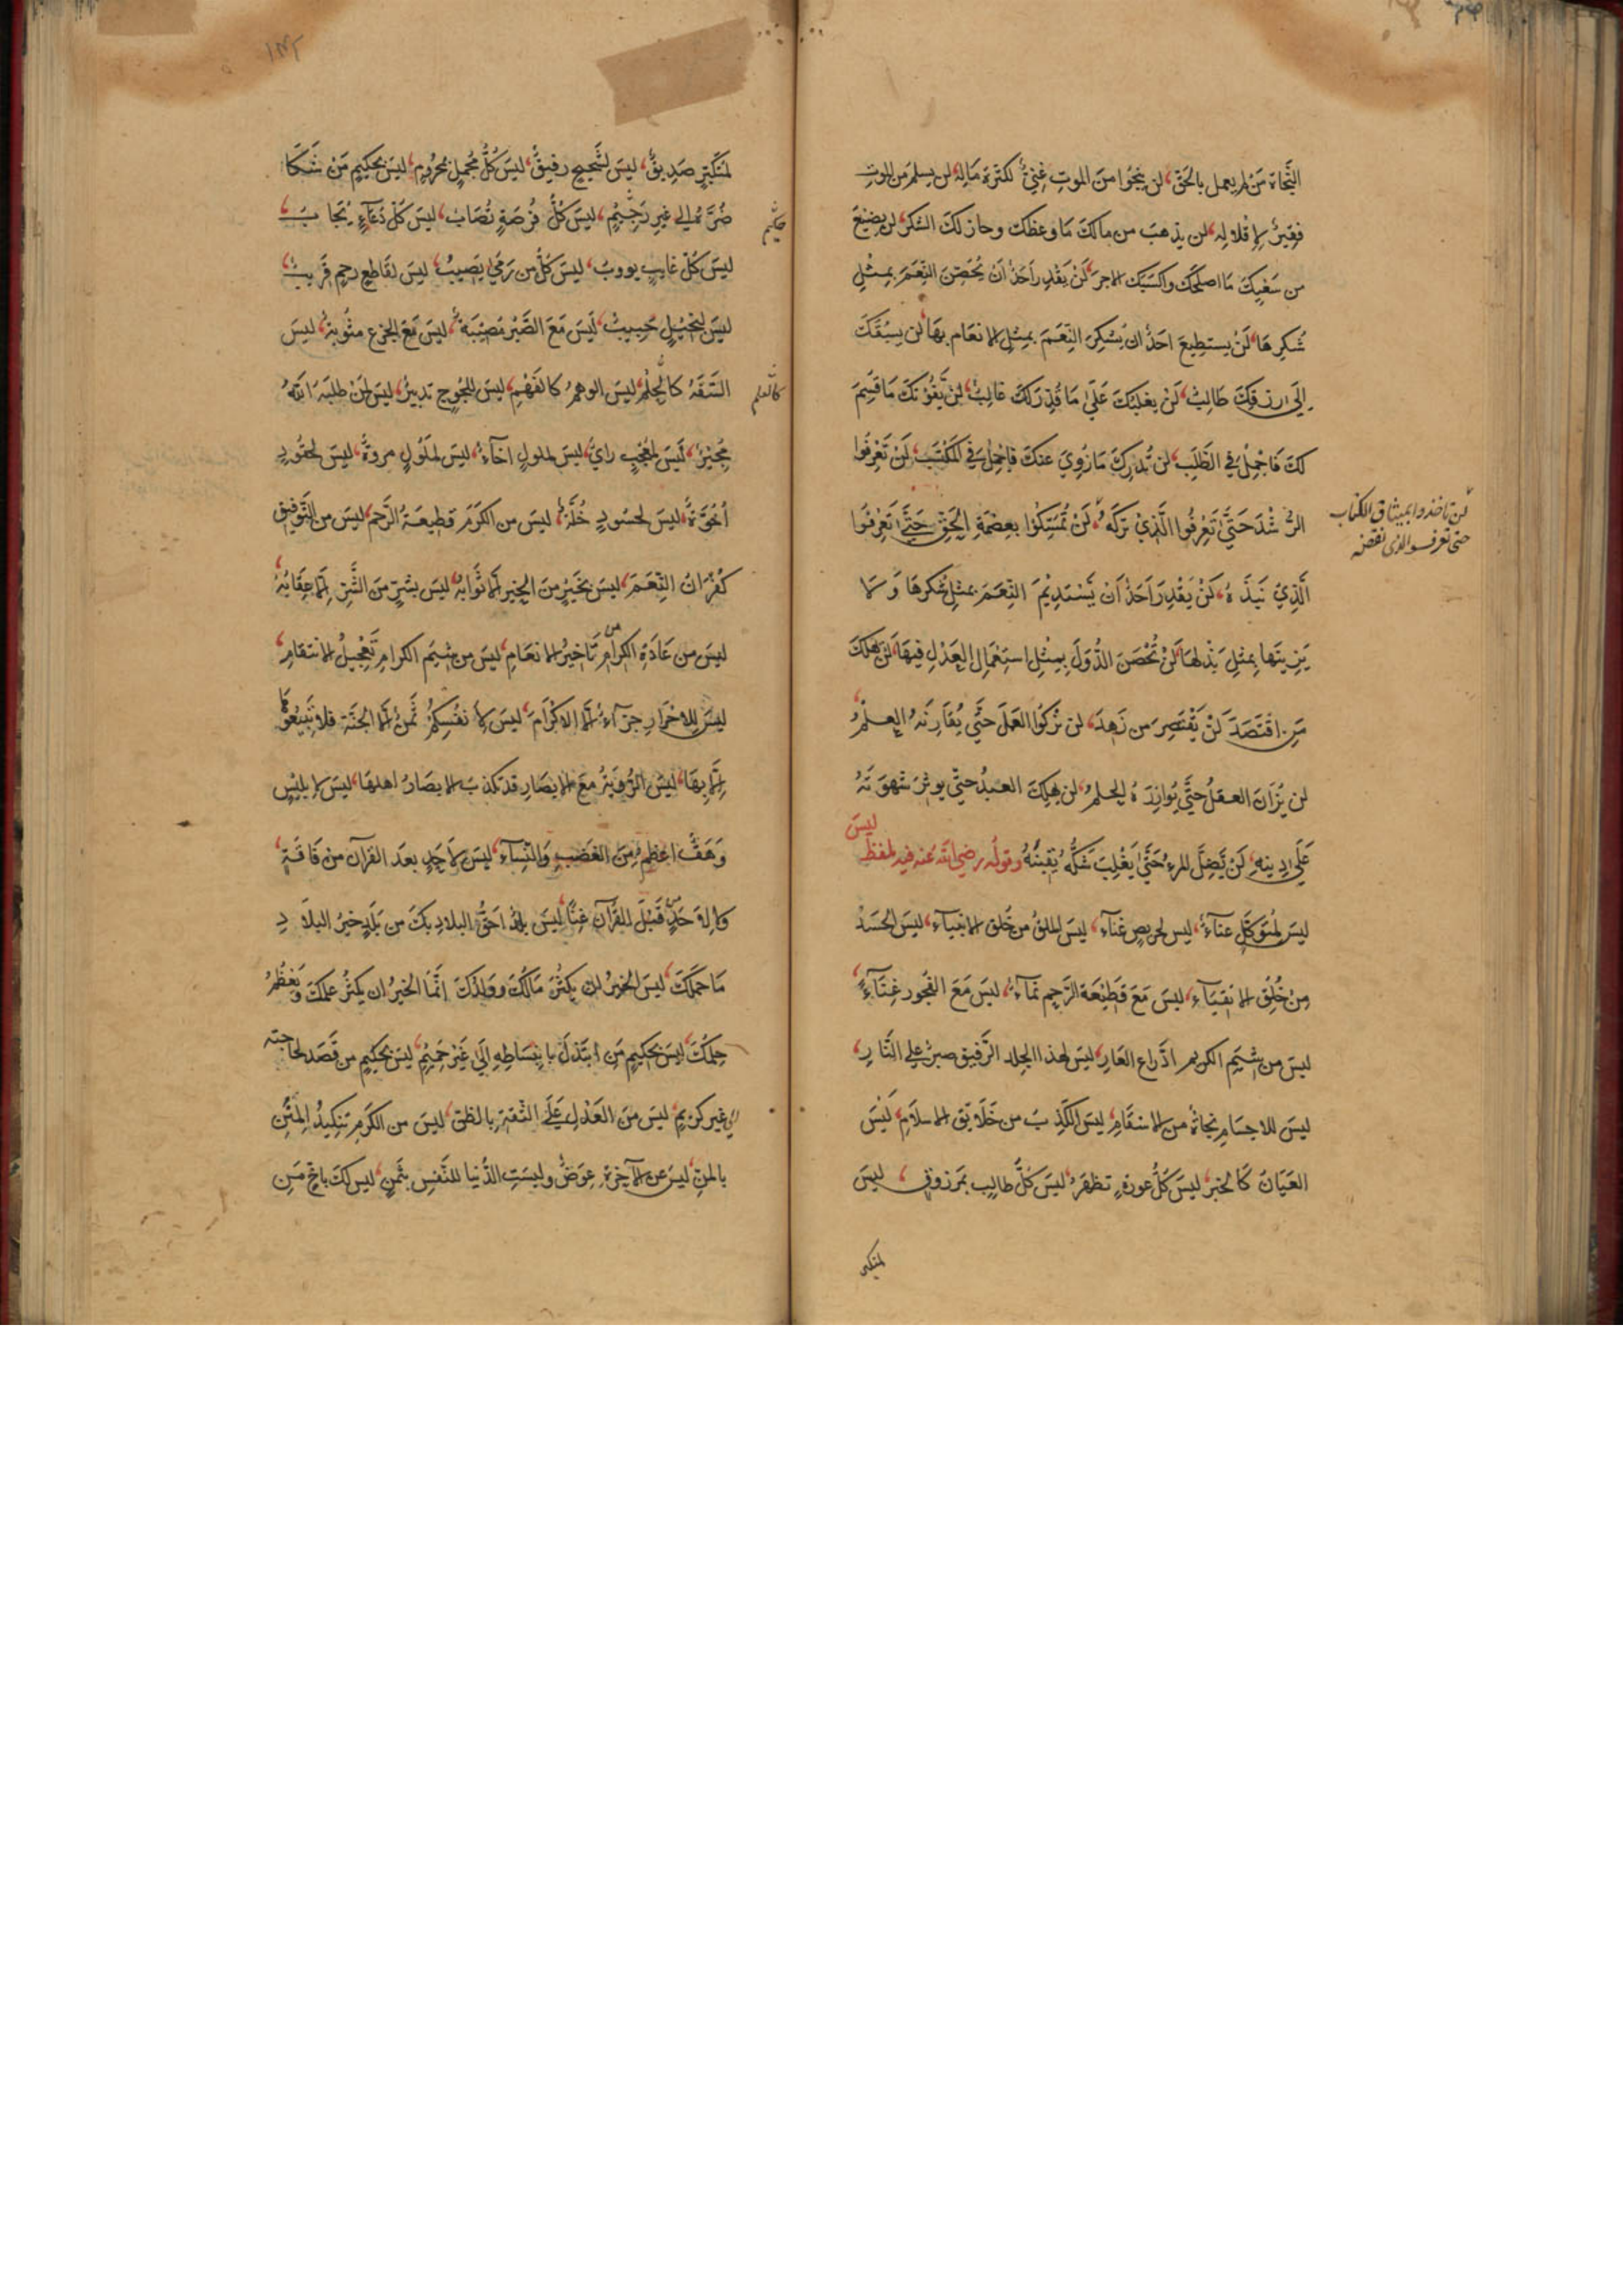 النَّجَاةَ مَنْ لم يعمل بالحَقّ، لن ينجُوا منَ الموتِ غنِيٌّ لكثرة مَالِه، لن يسلَم من الموتِ
فقِيرٌ لإقلاله، لن يذهبَ من مالكَ مَا وعظكَ وحاز لكَ الشكرَ، لن يضِيْعَ
من سَعْيِكَ مَا اصلحَكَ واكسَبَكَ الاجرَ، لَنْ يَقْدِرَ اَحَدٌ اَنْ يُحَصِّنَ النِّعَمَ بمِثْلِ
شُكرِهَا، لَنْ يستطِيعَ احَدٌ ان يَشكرَ النِّعَمَ بمثلِ الانعَام بهَا، لن يسبقَكَ
اِلَى رزقِكَ طَالبٌ، لَنْ يغلِبَكَ عَلَى مَا قُدِّرَ لكَ غَالبٌ، لن يَّفُوْتكَ مَا قُسِمَ
لكَ فَاجْمِلْ في الطَّلَبِ، لن تُدركَ مَا زُوِيَ عنكَ فاجْمِلْ في المكْتَسَب، لَنْ تَعْرِفُوا
الرُّشْدَ حَتَّى تَعْرِفُوا الَّذِيْ تركَهُ، لَنْ تُمْسِكُوْا بعِصْمَةِ الحَقِّ حَتَّى تَعْرِفُوا
لن تاخذوا بميثاق الكتاب
حتى تعرفوا الذى نقضه
الَّذِيْ نَبَذَهُ، لَنْ يَقْدِرَ اَحَدٌ اَنْ يَّسْتَدِيْمَ النِّعَمَ بمثلِ شكرِهَا وَلَا
يَزِينَهَا بمثلِ بَذْلِهَا، لَنْ تُحْصَنَ الدُّوَلَ بِمثْلِ استِعْمَالِ العَدْلِ فيهَا، لن يهْلكَ
مَنِ اقْتَصَدَ، لَنْ يَّفْتَقِرَ مَن زَهِدَ، لن يزكُوَ العَمَلُ حَتَّى يُقَارِنَهُ العِلْمُ،
لن يُزَانَ العقلُ حَتَّى يُوَازِرَهُ الحِلمُ، لن يهلِكَ العبدُ حتّى يوثِرَ شهوَتَهُ
عَلَى دينِهِ، لَنْ يَّضِلَّ المرءُ حَتَّى يَغْلِبَ شَكُّهُ يَقِينَهُ وقولُه رضي الله عنه فيه لمفظ ليسَ
ليسَ لمتَوكِّلٍ عنآءٌ، ليس لحريصٍ غَنَآءٌ، ليسَ الملقُ من خُلق الانبيآء، ليسَ الحَسَدُ
مِنْ خُلُقِ الاتقيَآء، ليسَ مَعَ قَطِيْعَةِ الرَّحِمِ نمَآءٌ، ليسَ مَعَ الفُجُورِ غِنَآءٌ،
ليسَ من شِيَمِ الكريم ادّراع العَارِ، ليسَ لهذا الجلد الرَّقيق صبرٌ على النَّارِ،
ليسَ للاجسَامِ نجاةٌ من الاسقَامِ، ليسَ الكذِبُ من خَلَايق الاسلَامِ، لَيْسَ
العيَانُ كَالخبر، ليسَ كلُّ عورةٍ تظهَرُ، ليسَ كلُّ طالِبٍ بمَرزوقٍ، ليسَ
لمتكبر
لمتكَبّرٍ صَدِيقٌ، ليسَ لشَحِيحٍ رفيقٌ، ليسَ كُلُّ مُجمِلٍ بمحرُومٍ، ليسَ بحَكِيمٍ مَنْ شَكَا
ضُرَّهُ الى غيرِ رَحِيْمٍ، ليسَ كلُّ فُرصَةٍ تُصَابُ، ليسَ كلُّ دُعَآءٍ يُجَابُ،
ليسَ كلّ غايبٍ يووبُ، ليسَ كلُّ من رَمَى يُصِيبُ، ليسَ لقَاطِعِ رحِمٍ قَرِيبٌ،
ليسَ لبَخيْلٍ حَبِيبٌ، لَيْسَ مَعَ الصَّبْرِ مُصِيْبَةٌ، ليسَ مَعَ الجزعِ مثُوبَةٌ، ليسَ
السَّفَهُ كَالحِلْمِ، ليسَ الوهمُ كالفَهْمِ، ليسَ للجُوجٍ تدبيرٌ، ليسَ لمَنْ طلبَهُ اللهُ
مُجِيرٌ، لَيْسَ لمعْجِبٍ رايٌ، ليسَ لملولٍ اخَآءٌ، ليسَ لمَلُولٍ مروةٌ، ليسَ لحقُودٍ
اُخُوَّةٌ، ليسَ لحسُودٍ خُلَّةٌ، ليسَ من الكرَمِ قطِيعَةُ الرَّحِم، ليسَ من التَّوفيقِ
كُفْرَانُ النِّعَمِ، ليسَ بخَيرٍ منَ الخيرِ الّا ثَوابُهُ، ليسَ بشرٍّ منَ الشَّرِّ الّا عِقَابُهُ،
ليسَ من عَادَةِ الكرام تَاخيرُ الانعَامِ، ليسَ من شِيَمِ الكرامِ تَعْجِيلُ الانتقامِ،
ليسَ للاحْرَارِ جزآءٌ الّا الاكْرَامَ، ليسَ لانفُسِكُمْ ثمنٌ الّا الجنَّة فلا تَبيعُوهَا
الّا بهَا، ليسَ الرُّؤيةُ مَعَ الابصَارِ قد تكذبُ الابصَارُ اهلهَا، ليسَ لابليسٍ
وَهَقٌ اعظمُ مِنَ الغَضَبِ وَالنِّسآء، ليسَ لاحَدٍ بعدَ القرآن من فَاقَةٍ،
وَلا لاحَدٍ قَبْلَ القُرآن غِنًا، ليسَ بلدٌ احَقُّ البلادِ بكَ من بَلَدٍ خيرُ البلَادِ
مَا حمَلَكَ، ليسَ الخيرُ ان يكثُرَ مَالُكَ وولدُكَ انَّمَا الخيرُ ان يكثُرَ علمُكَ وَيَعْظُمَ
حِلمُكَ، ليسَ بحَكِيمٍ مَن ابتذَلَ بانبِسَاطِهِ اِلَى غَيْرِ حَمِيْمٍ، ليسَ بحَكِيمٍ من قَصَدَ لحاجته
الى غير كَرِيمٍ، ليسَ منَ العَدْلِ عَلَى الثِّقةِ بالظنّ، ليسَ من الكَرَمِ تنكِيدُ المِنَنِ
بالمنِّ، ليسَ عن الآخِرَةِ عِوَضٌ وليسَتِ الدُّنيا للنَّفسِ بثَمَنٍ، ليس لكَ باخٍ مَنِ